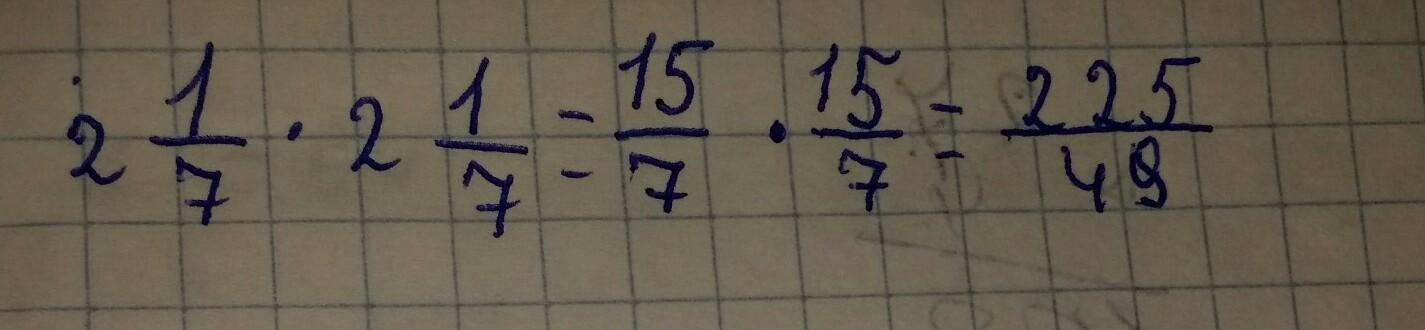 2 1/7 · 2 1/7 = 15/7 · 15/7 = 225/49